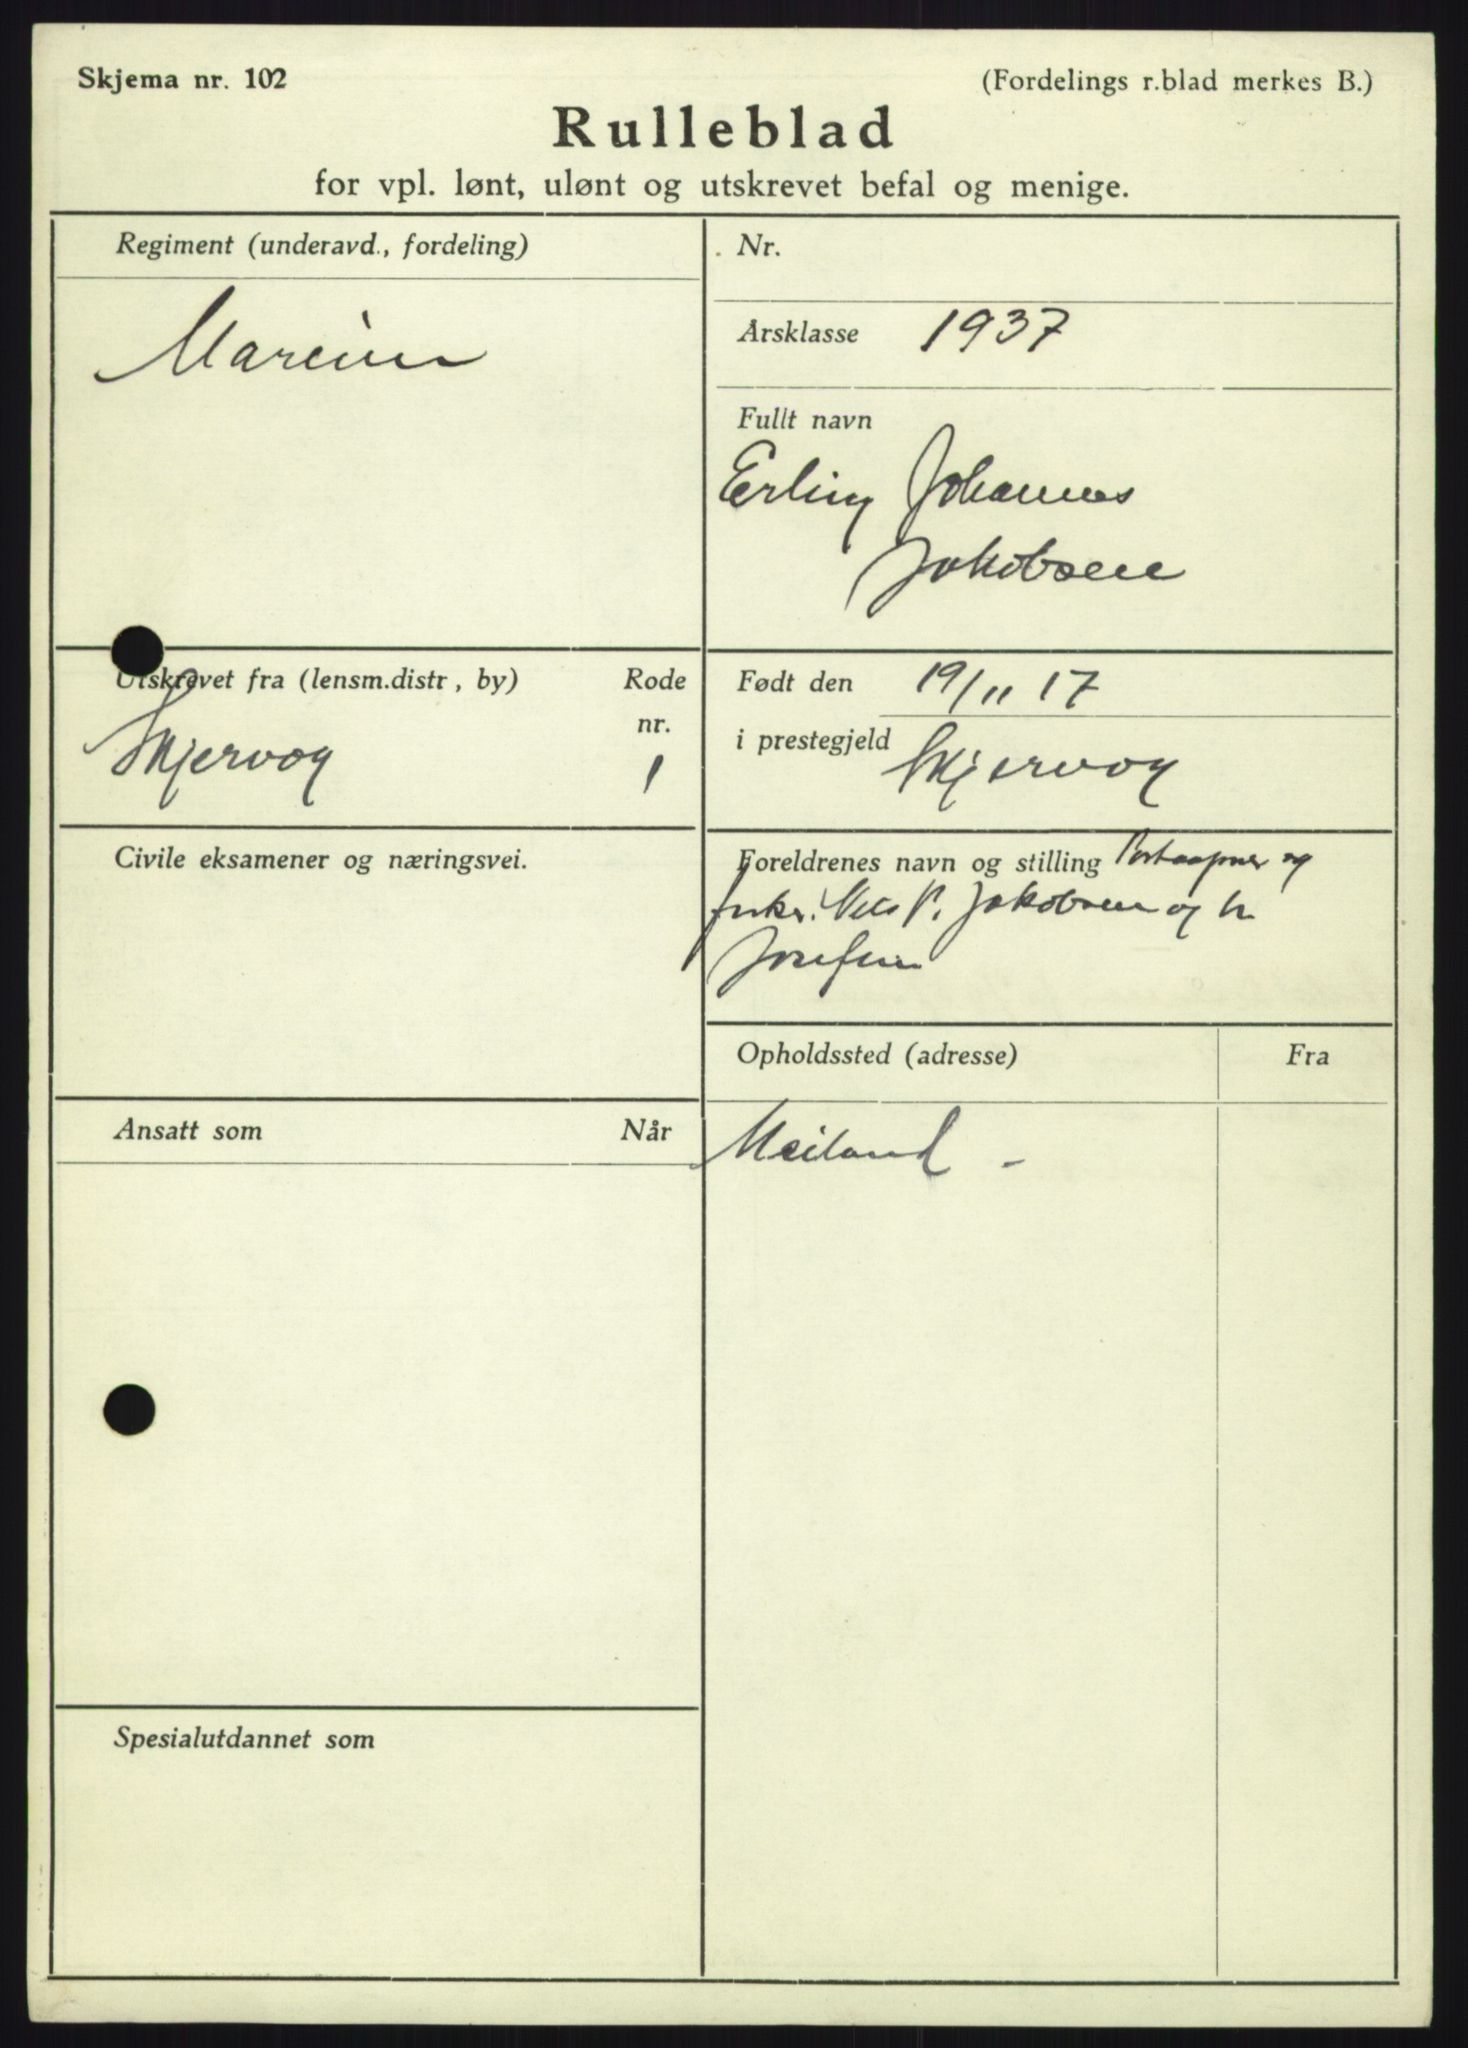 Skjema nr. 102
(Fordelings r.blad merkes B.)
Rulleblad
for vpl. lønt, ulønt og utskrevet befal og menige.
Regiment (underavd., fordeling)
Marinen
Nr.
Årsklasse 1937
Fullt navn
Erling Johannes
Jakobsen
Utskrevet fra (lensm.distr, by)
Rode
nr.
Skjervøy
1
Født den 19/11 17
i prestegjeld Skjervøy
Civile eksamener og næringsvei.
Foreldrenes navn og stilling Postaapner og
fisker Nils P. Jakobsen og h.
Josefine
Opholdssted (adresse)
Fra
Meiland -
Ansatt som
Når
Spesialutdannet som